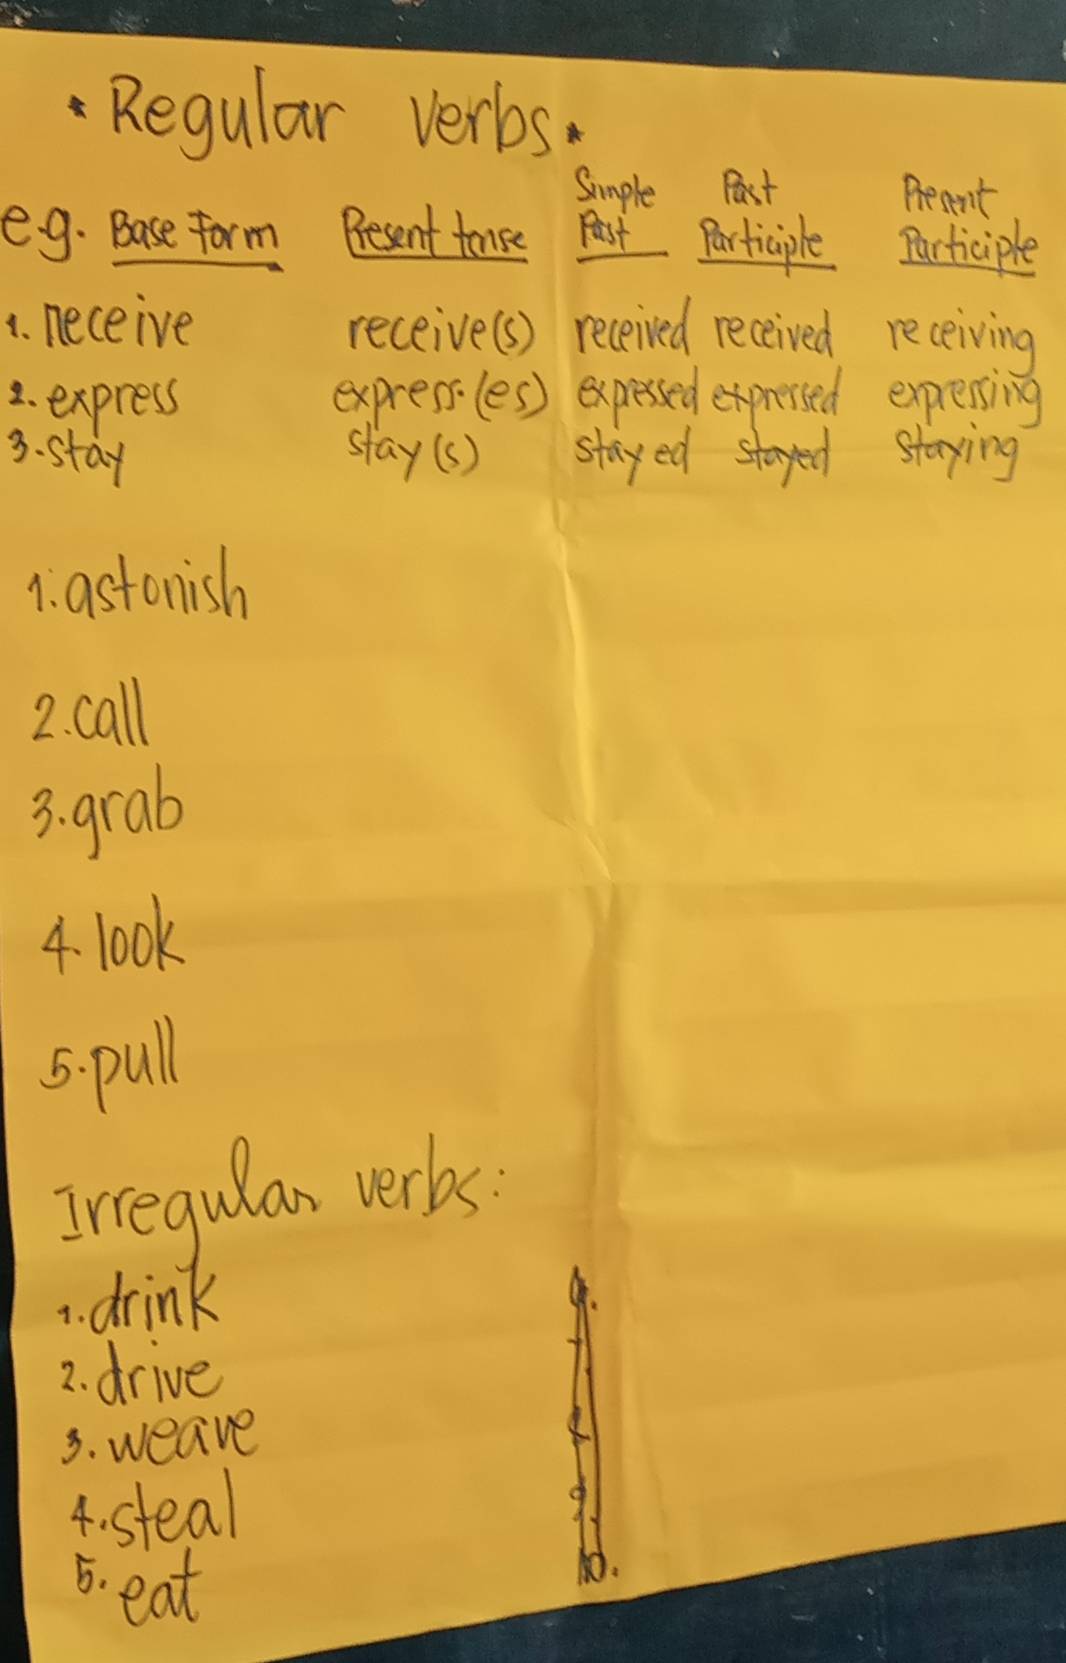 • Regular Verbs •
Simple Past Present
e.g. Base Form Present tense Past Participle Participle
1. receive receive(s) received received receiving
2. express express (es) expressed expressed expressing
3. stay stay (s) stayed stayed staying
1. astonish
2. call
3. grab
4. look
5. pull
Irregular verbs:
1. drink
2. drive
3. weave
4. steal
5. eat
10.